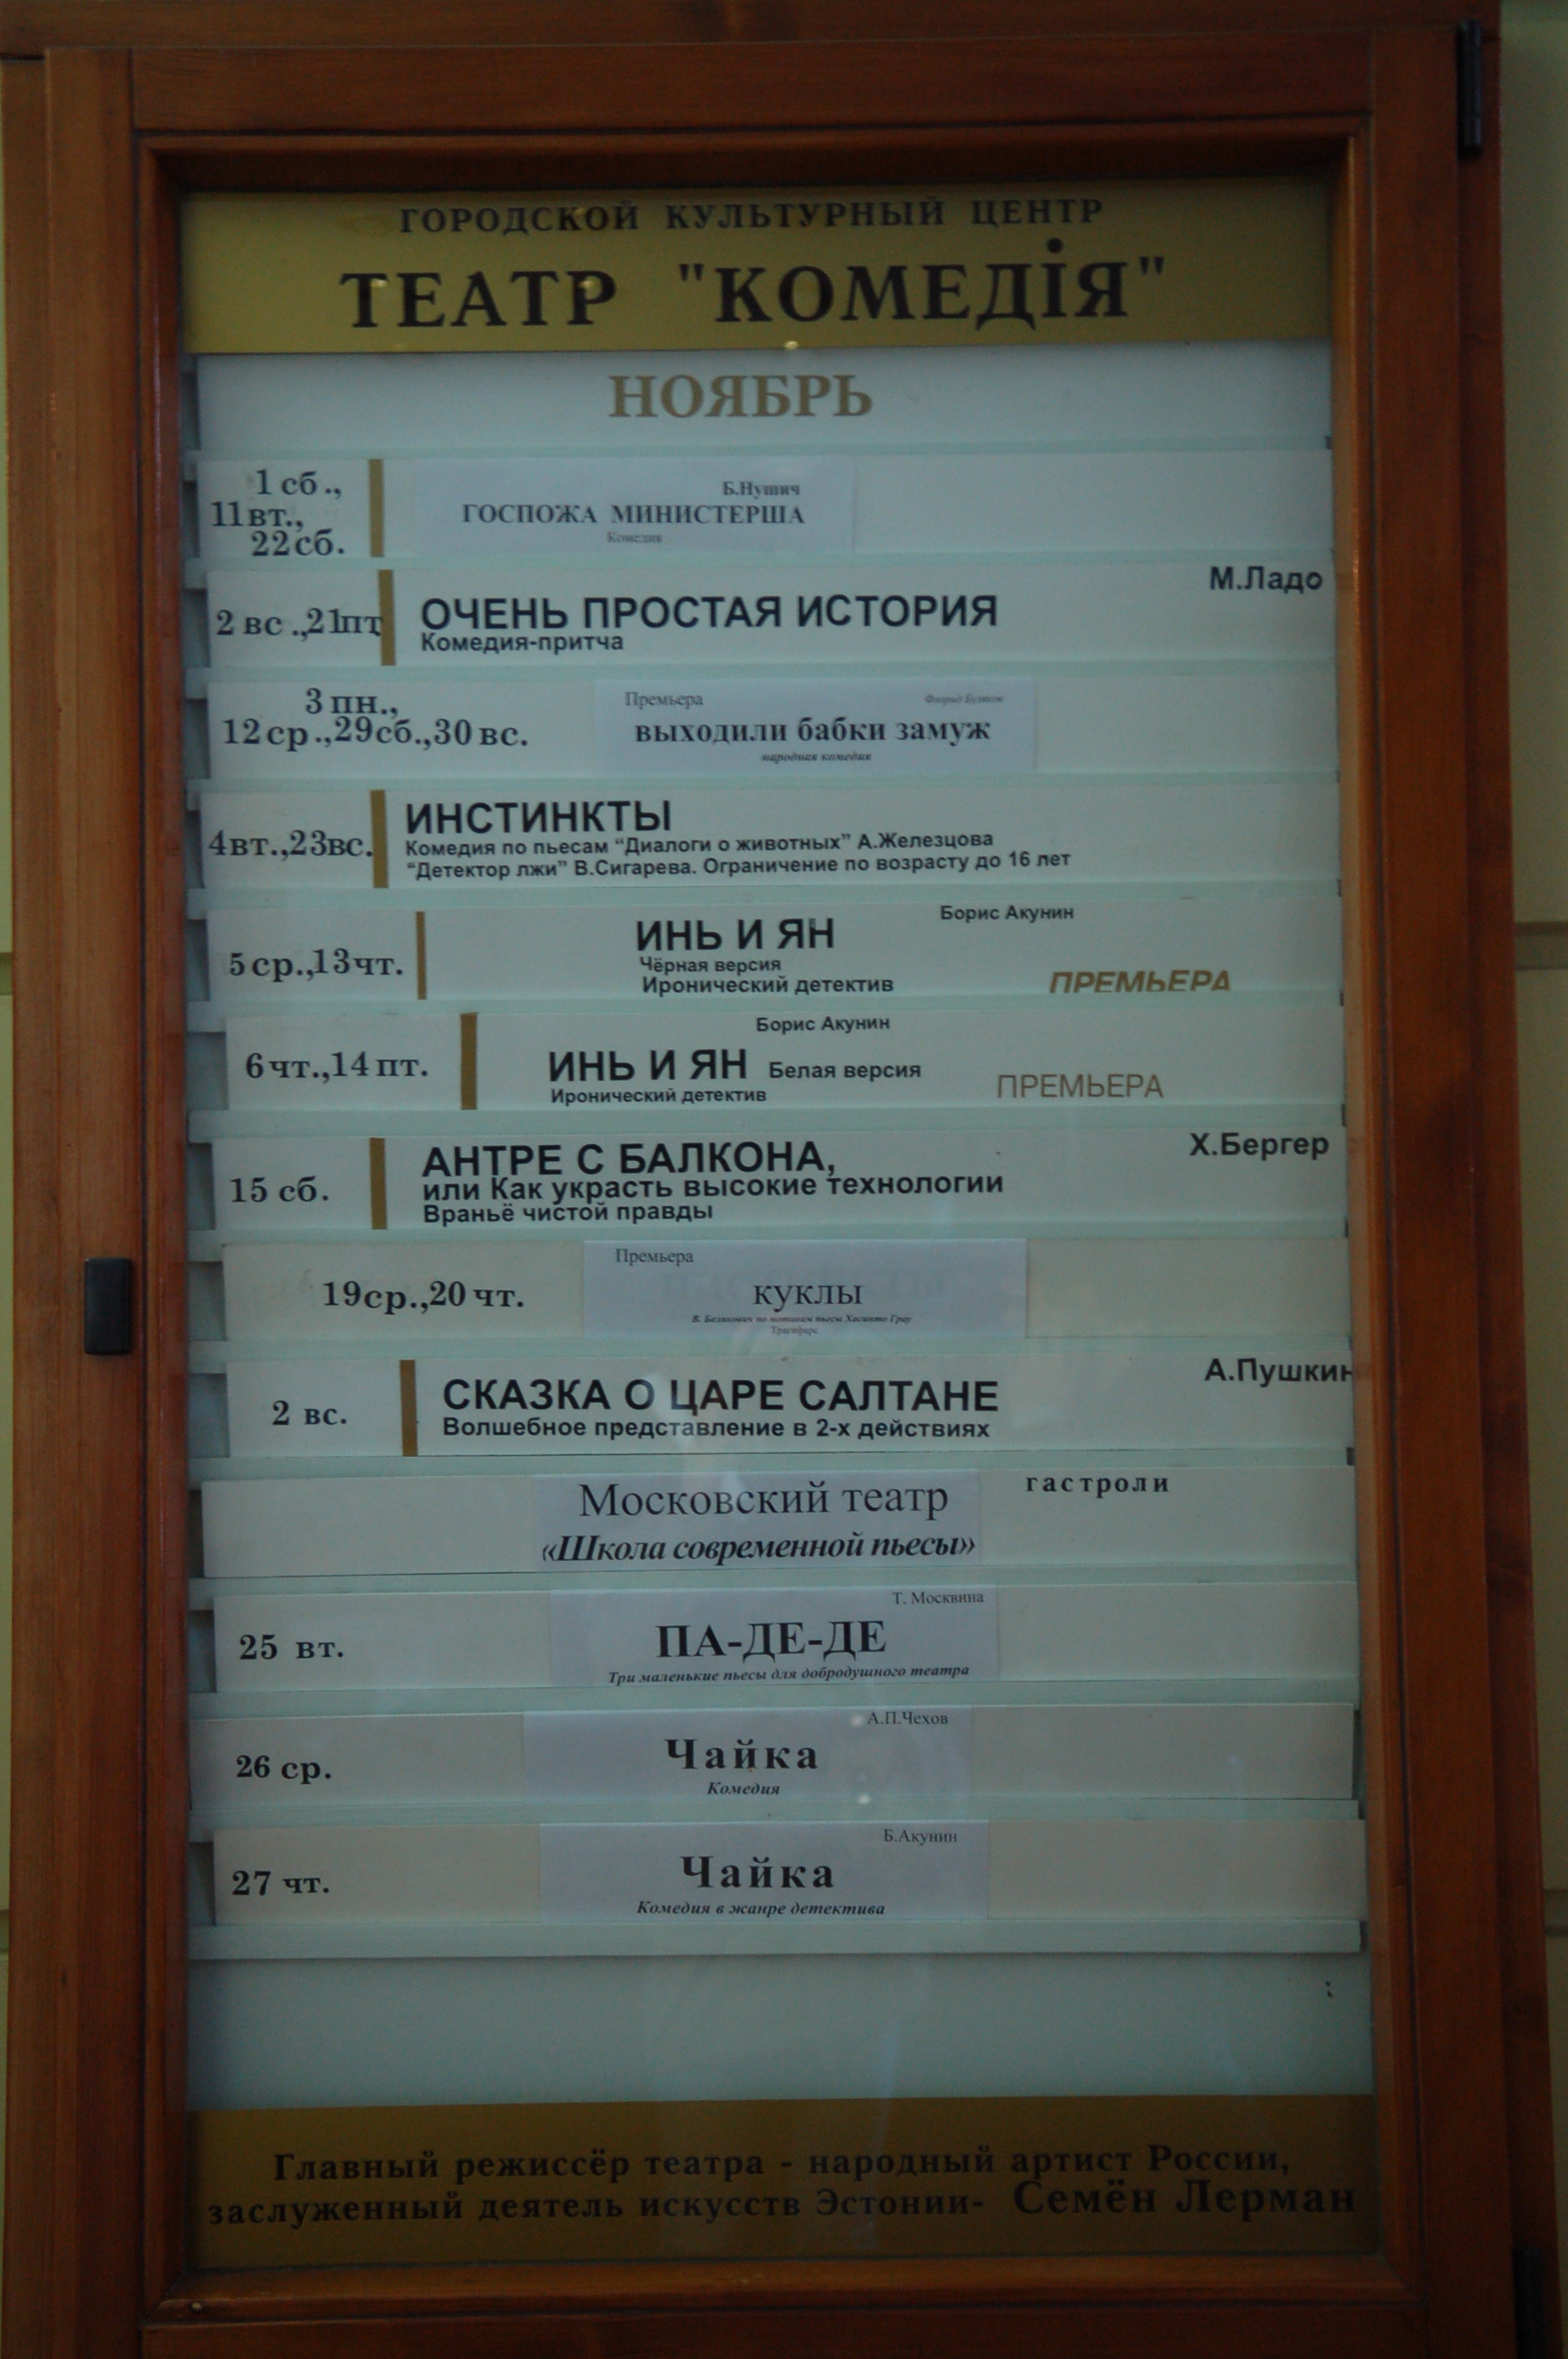 ГОРОДСКОЙ КУЛЬТУРНЫЙ ЦЕНТР
ТЕАТР "КОМЕДіЯ"
НОЯБРЬ
1 сб.,
11вт.,
22сб.
Б.Нушич
ГОСПОЖА МИНИСТЕРША
Комедия
2 вс.,21пт
М.Ладо
ОЧЕНЬ ПРОСТАЯ ИСТОРИЯ
Комедия-притча
3 пн.,
12 ср.,29сб.,30 вс.
Премьера
выходили бабки замуж
народная комедия
4вт.,23вс.
ИНСТИНКТЫ
Комедия по пьесам “Диалоги о животных” А.Железцова
“Детектор лжи” В.Сигарева. Ограничение по возрасту до 16 лет
5 ср.,13чт.
Борис Акунин
ИНЬ И ЯН
Чёрная версия
Иронический детектив
ПРЕМЬЕРА
6 чт.,14 пт.
Борис Акунин
ИНЬ И ЯН Белая версия
Иронический детектив
ПРЕМЬЕРА
15 сб.
Х.Бергер
АНТРЕ С БАЛКОНА,
или Как украсть высокие технологии
Враньё чистой правды
19ср.,20 чт.
Премьера
куклы
В. Белякович по мотивам пьесы Хасинто Грау
Трагифарс
2 вс.
А.Пушкин
СКАЗКА О ЦАРЕ САЛТАНЕ
Волшебное представление в 2-х действиях
Московский театр
гастроли
«Школа современной пьесы»
25 вт.
Т. Москвина
ПА-ДЕ-ДЕ
Три маленькие пьесы для добродушного театра
26 ср.
А.П.Чехов
Чайка
Комедия
27 чт.
Б.Акунин
Чайка
Комедия в жанре детектива
Главный режиссёр театра - народный артист России,
заслуженный деятель искусств Эстонии- Семён Лерман